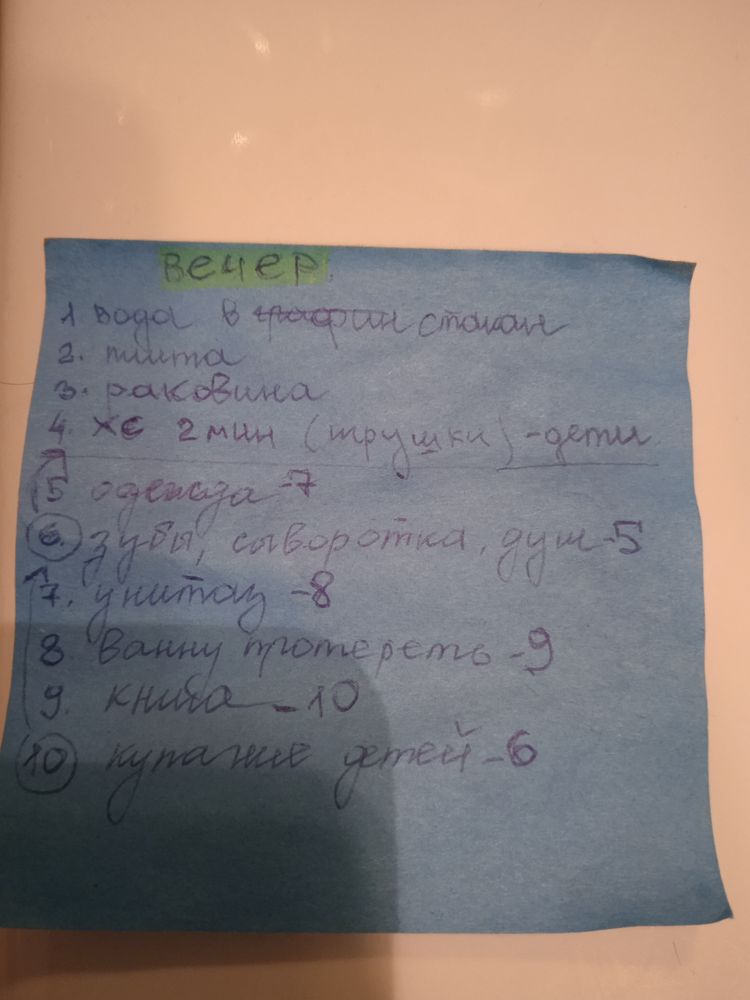 вечер
1 вода в графин стакан
2. плита
3. раковина
4. хс 2 мин (трушки) - дети
5 одежда - 7
6. зубы, сыворотка, душ - 5
7. унитаз - 8
8 ванну протереть - 9
9. книга - 10
10 купание детей - 6